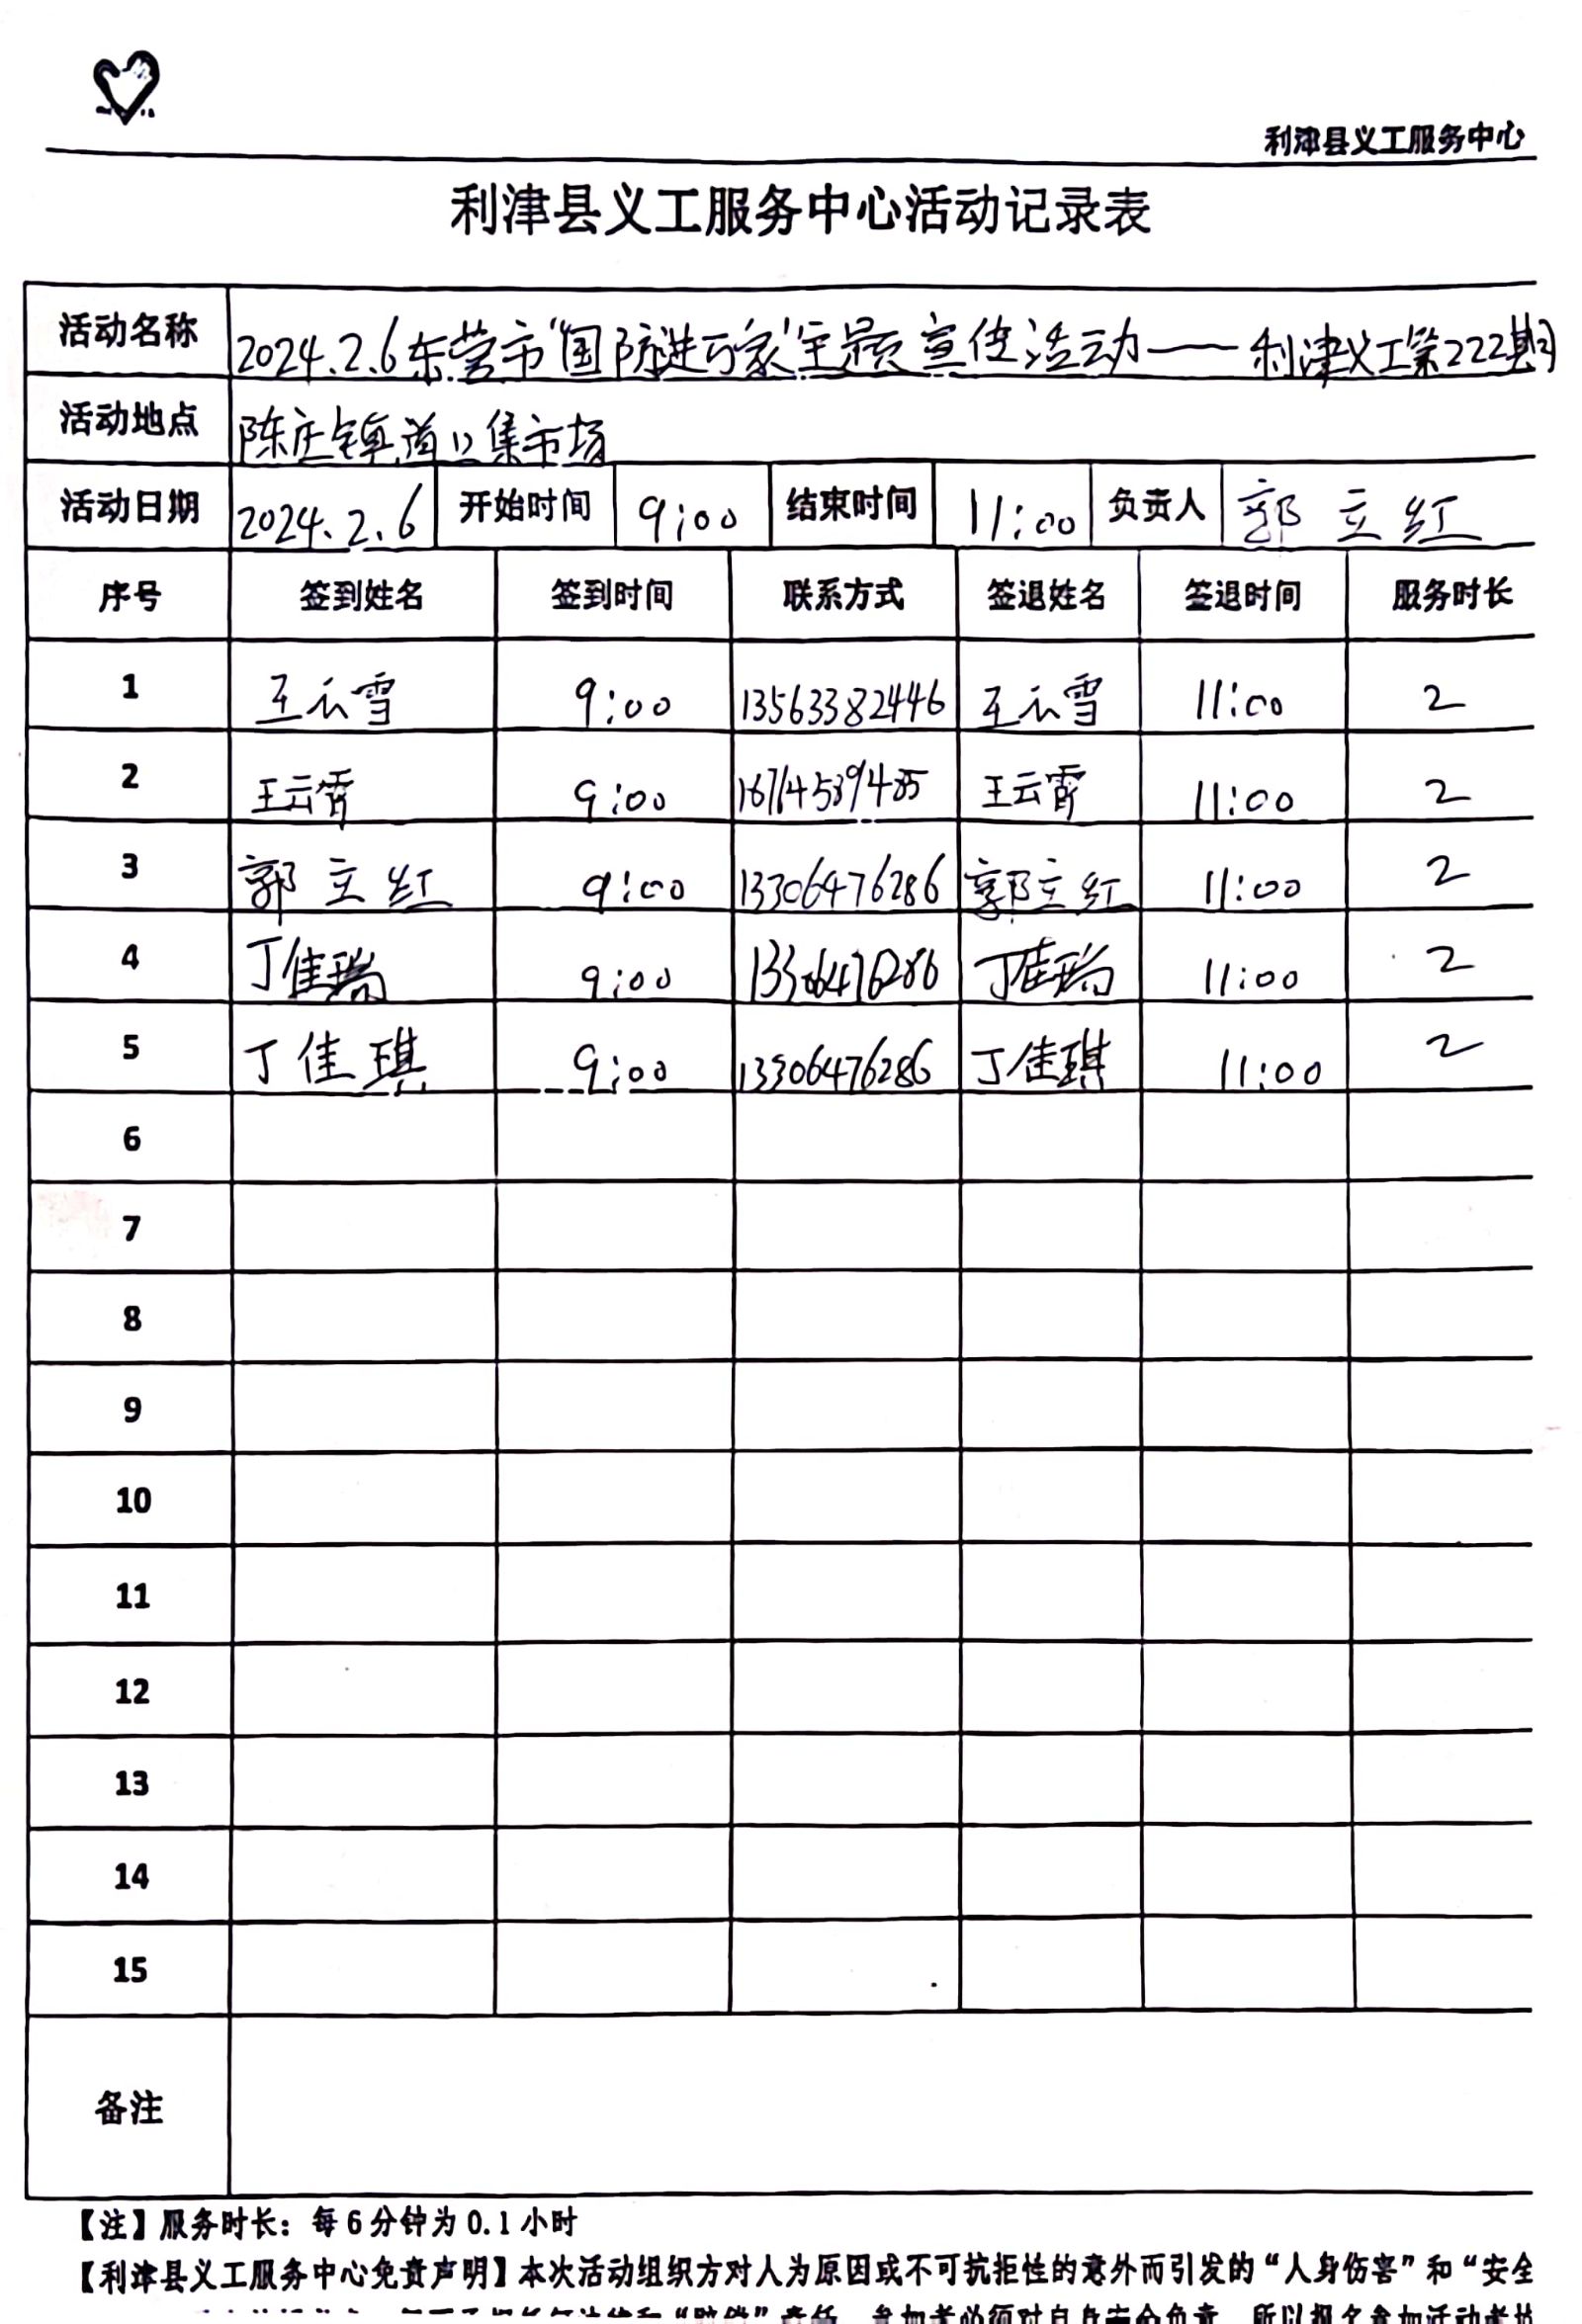 利津县义工服务中心
利津县义工服务中心活动记录表
活动名称 2024.2.6东营市“国防进万家”主题宣传活动——利津义工第222期
活动地点 陈庄镇道口集市场
活动日期 2024.2.6 开始时间 9:00 结束时间 11:00 负责人 郭立红
序号 签到姓名 签到时间 联系方式 签退姓名 签退时间 服务时长
1 王云雪 9:00 13563382446 王云雪 11:00 2
2 王云霄 9:00 王云霄 11:00 2
3 郭立红 9:00 13306476286 郭立红 11:00 2
4 丁佳瑞 9:00 13306476286 丁佳瑞 11:00 2
5 丁佳琪 9:00 13306476286 丁佳琪 11:00 2
6
7
8
9
10
11
12
13
14
15
备注
【注】服务时长：每6分钟为0.1小时
【利津县义工服务中心免责声明】本次活动组织方对人为原因或不可抗拒性的意外而引发的“人身伤害”和“安全